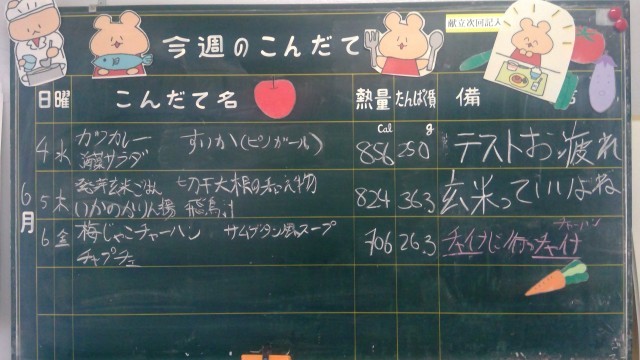 今週のこんだて
献立次回記入
日 曜 こんだて名 熱量 たんぱく質 備
Cal g
6月
4 水 カツカレー すいか(ピノガール) 858 25.0 テストお疲れ
海藻サラダ
5 木 発芽玄米ごはん 切干大根のチョレギ和え物 824 36.3 玄米っていいよね
いかのかりん揚 飛鳥汁
6 金 梅じゃこチャーハン サムゲタン風スープ 706 26.3
チャプチェ
チャーハン